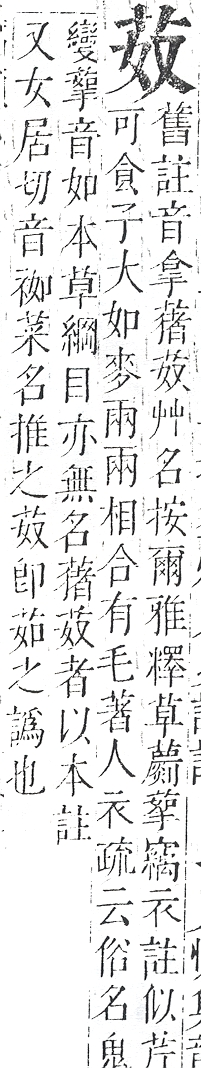 舊註音拿蕏艸名按爾雅釋草蘮蒘竊衣註似芹
可食子大如麥兩兩相合有毛著人衣疏云俗名鬼
孌蒘音如本草綱目亦無名蕏者以本註
又女居切音袽菜名推之卽茹之譌也